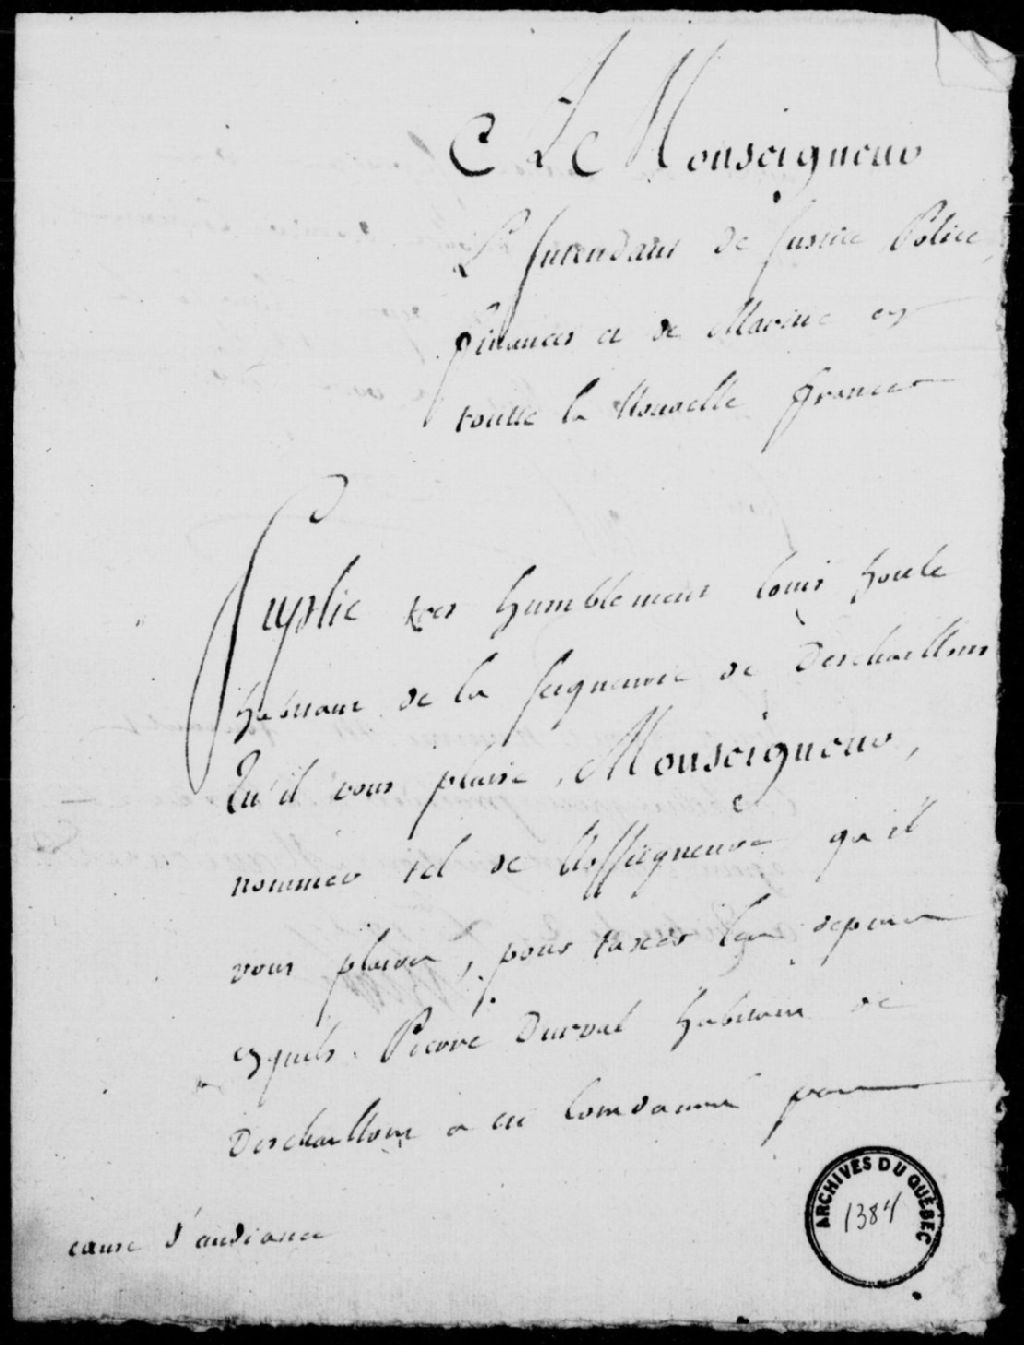 A Monseigneur
L'Intendant de Justice Police
finances et de Marine en
toutte la Nouvelle france
Suplie tres humblement louis houle
habitant de la seigneurie de Deschaillons
Qu'il vous plaise, Monseigneur,
nommer tel de Nosseigneurs qu'il
vous plaira, pour taxer les depens
esquels Pierre Durval habitant de
Deschaillons a été Condamné par
cause d'audiance
ARCHIVES DU QUÉBEC
1384